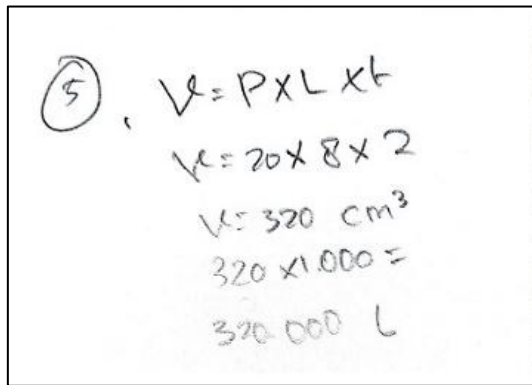 5. V = P X L X t
V = 20 X 8 X 2
V = 320 cm³
320 X 1.000 =
320.000 L